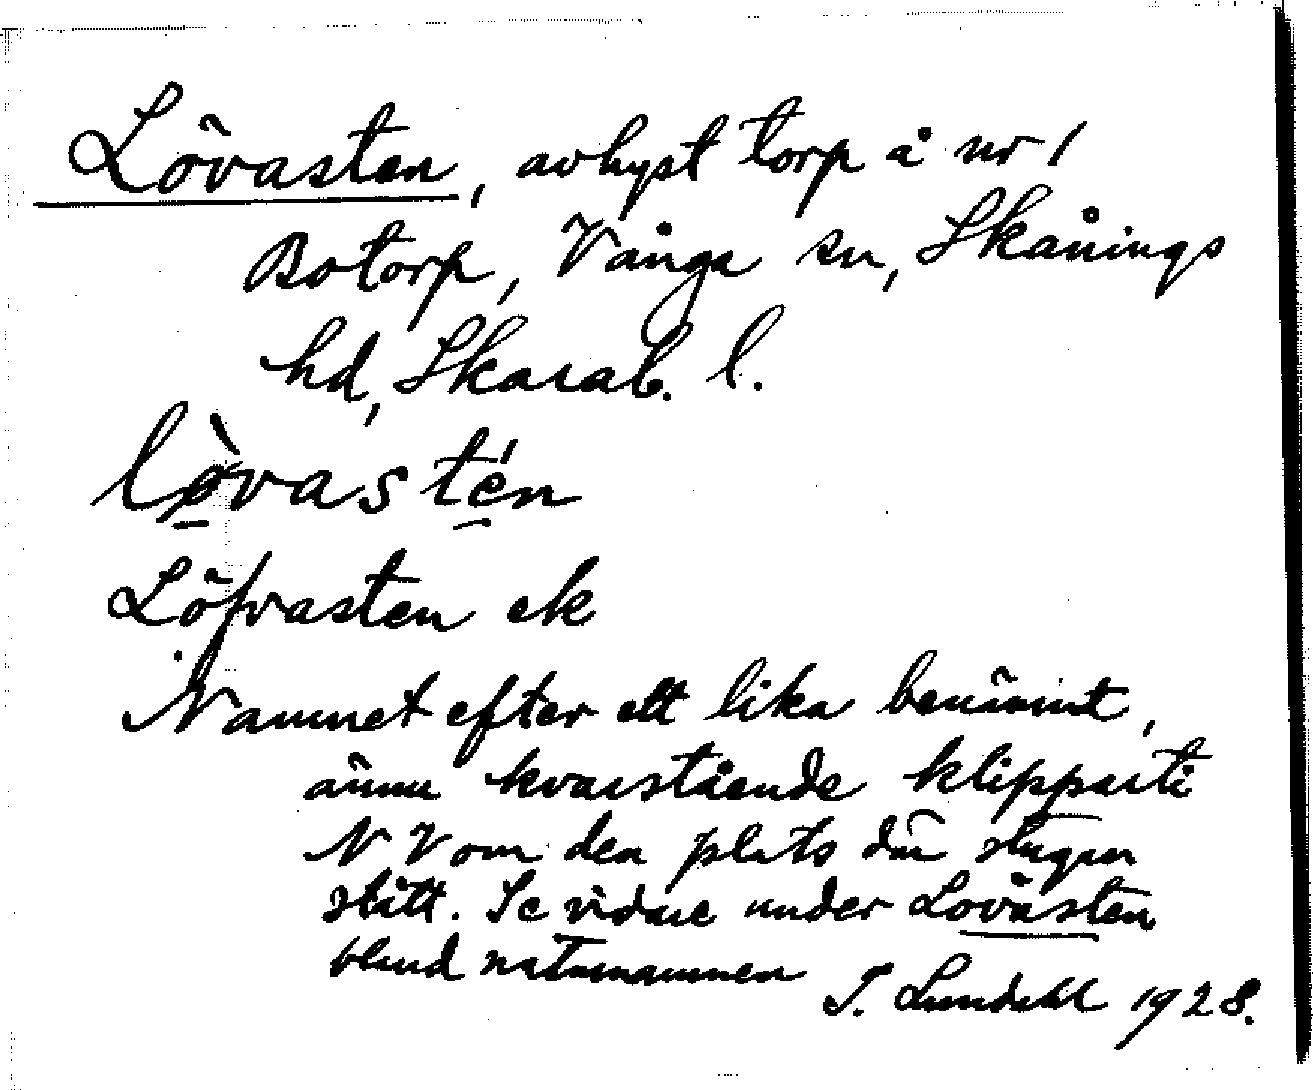 Lövasten, avhyst torp å nr 1
Botorp, Vånga sn, Skånings
hd, Skarab. l.
lø̀vastén
Löfvasten ek
Namnet efter ett lika benämnt,
ännu kvarstående klipparti
NV om den plats där stugan
stått. Se vidare under Lövasten
bland naturnamnen
I. Lundahl 1928.